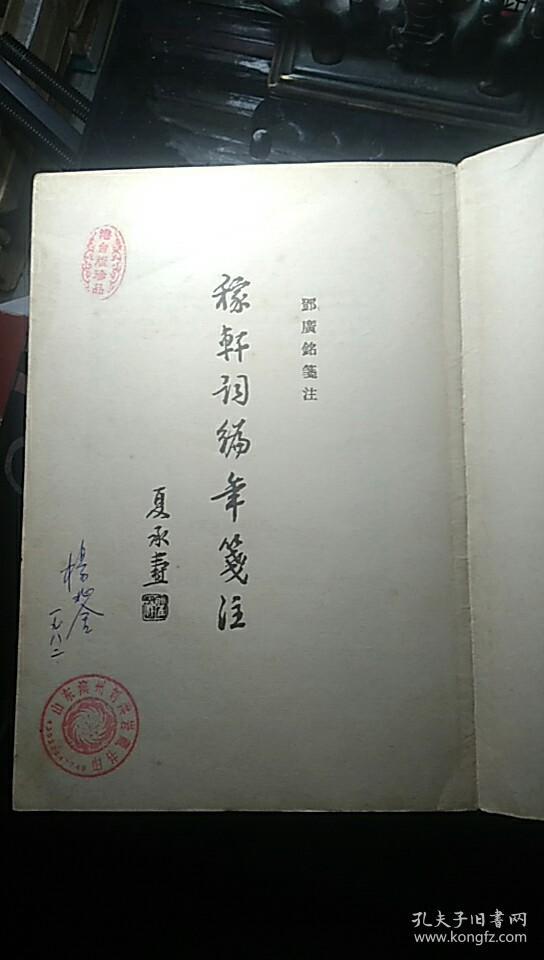 鄧廣銘箋注
稼軒词編年箋注
夏承燾
港台版珍品
一九八二
孔夫子旧书网
www.kongfz.com